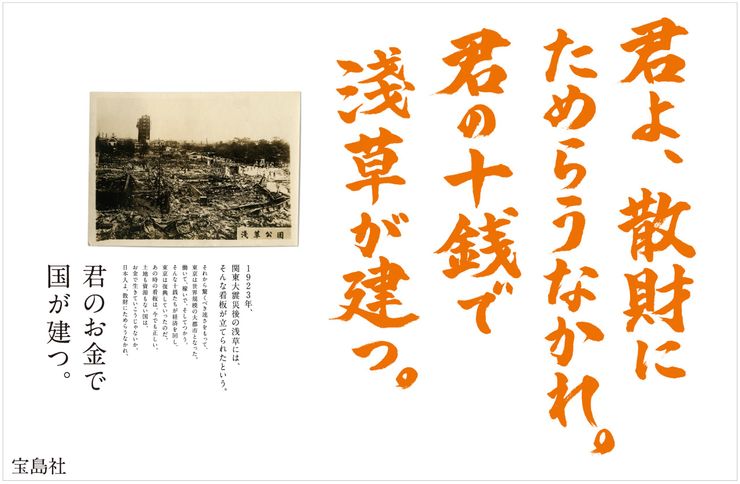 君よ、散財に
ためらうなかれ。
君の十銭で
淺草が建つ。
淺草公園
1923年、
関東大震災後の浅草には、
そんな看板が立てられたという。
それから驚くべき速さをもって、
東京は世界規模の大都市となった。
働いて、稼いで、そしてつかう。
そんな十銭たちが経済を回し、
東京は復興していったのだ。
あの時の看板は、今でも正しい。
土地も資源もない国は、
お金で生きていこうじゃないか。
日本人よ。散財にためらうなかれ。
君のお金で
国が建つ。
宝島社